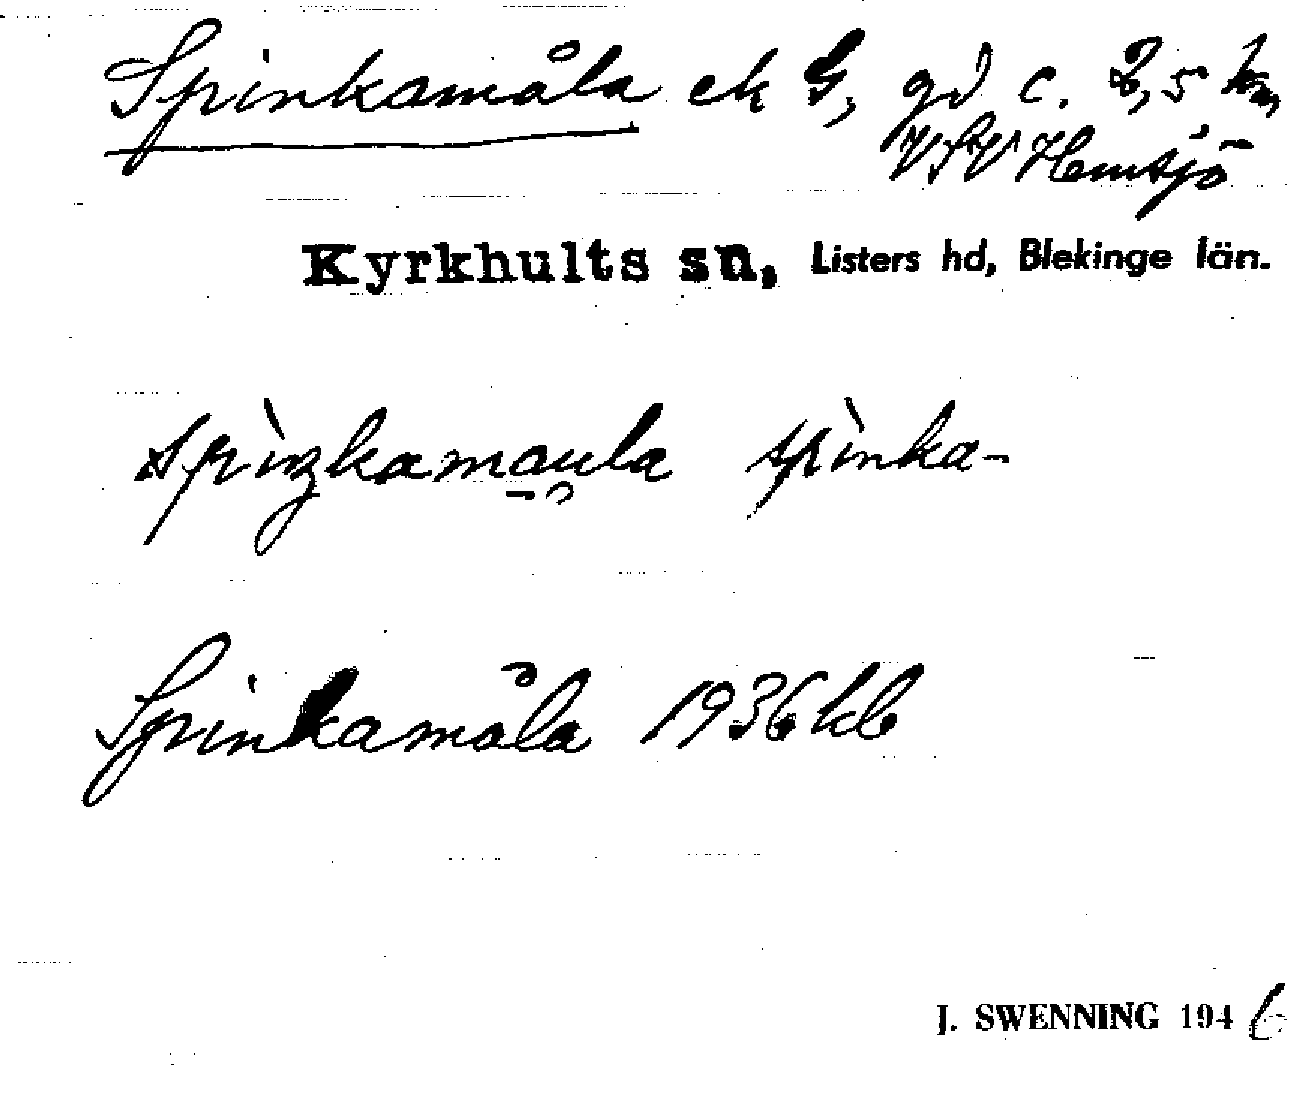 Spinkamåla ek G, gd c. 2,5 km
VSV Hemsjö
Kyrkhults sn, Listers hd, Blekinge län.
spìŋkamaula spìnka-
Spinkamåla 1936 kb
J. SWENNING 1946